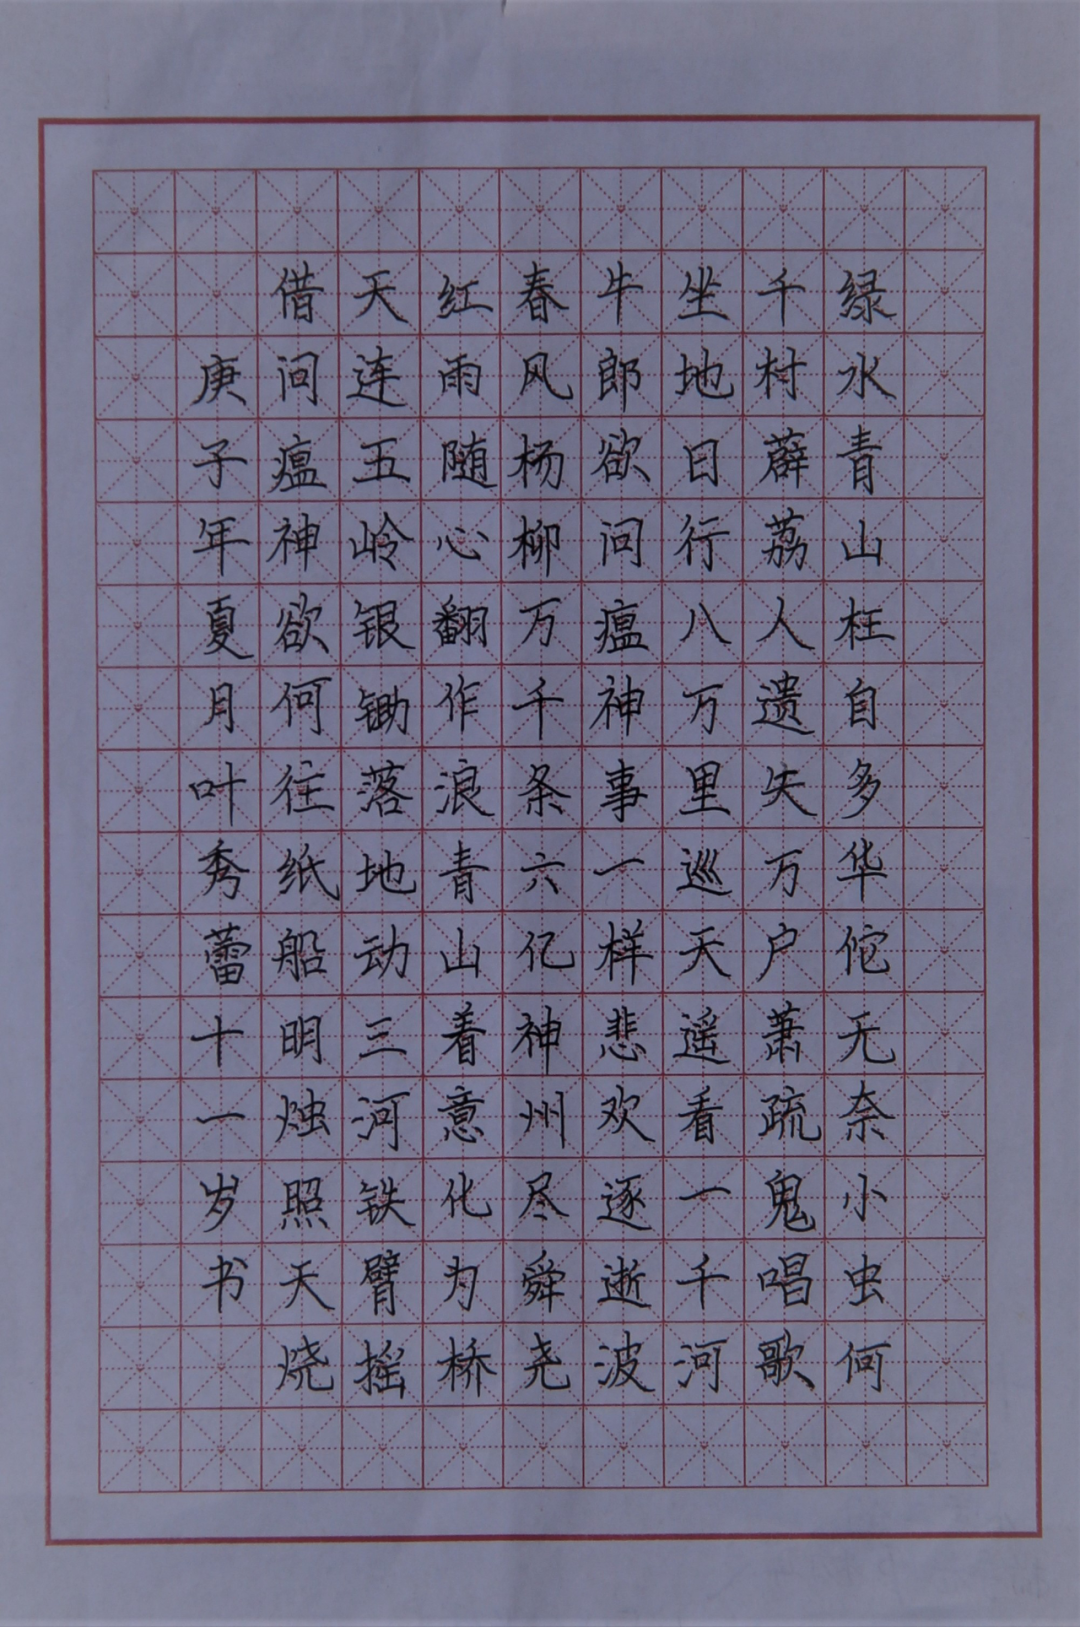 绿水青山枉自多华佗无奈小虫何
千村薜荔人遗失万户萧疏鬼唱歌
坐地日行八万里巡天遥看一千河
牛郎欲问瘟神事一样悲欢逐逝波
春风杨柳万千条六亿神州尽舜尧
红雨随心翻作浪青山着意化为桥
天连五岭银锄落地动三河铁臂摇
借问瘟神欲何往纸船明烛照天烧
庚子年夏月叶秀蕾十一岁书